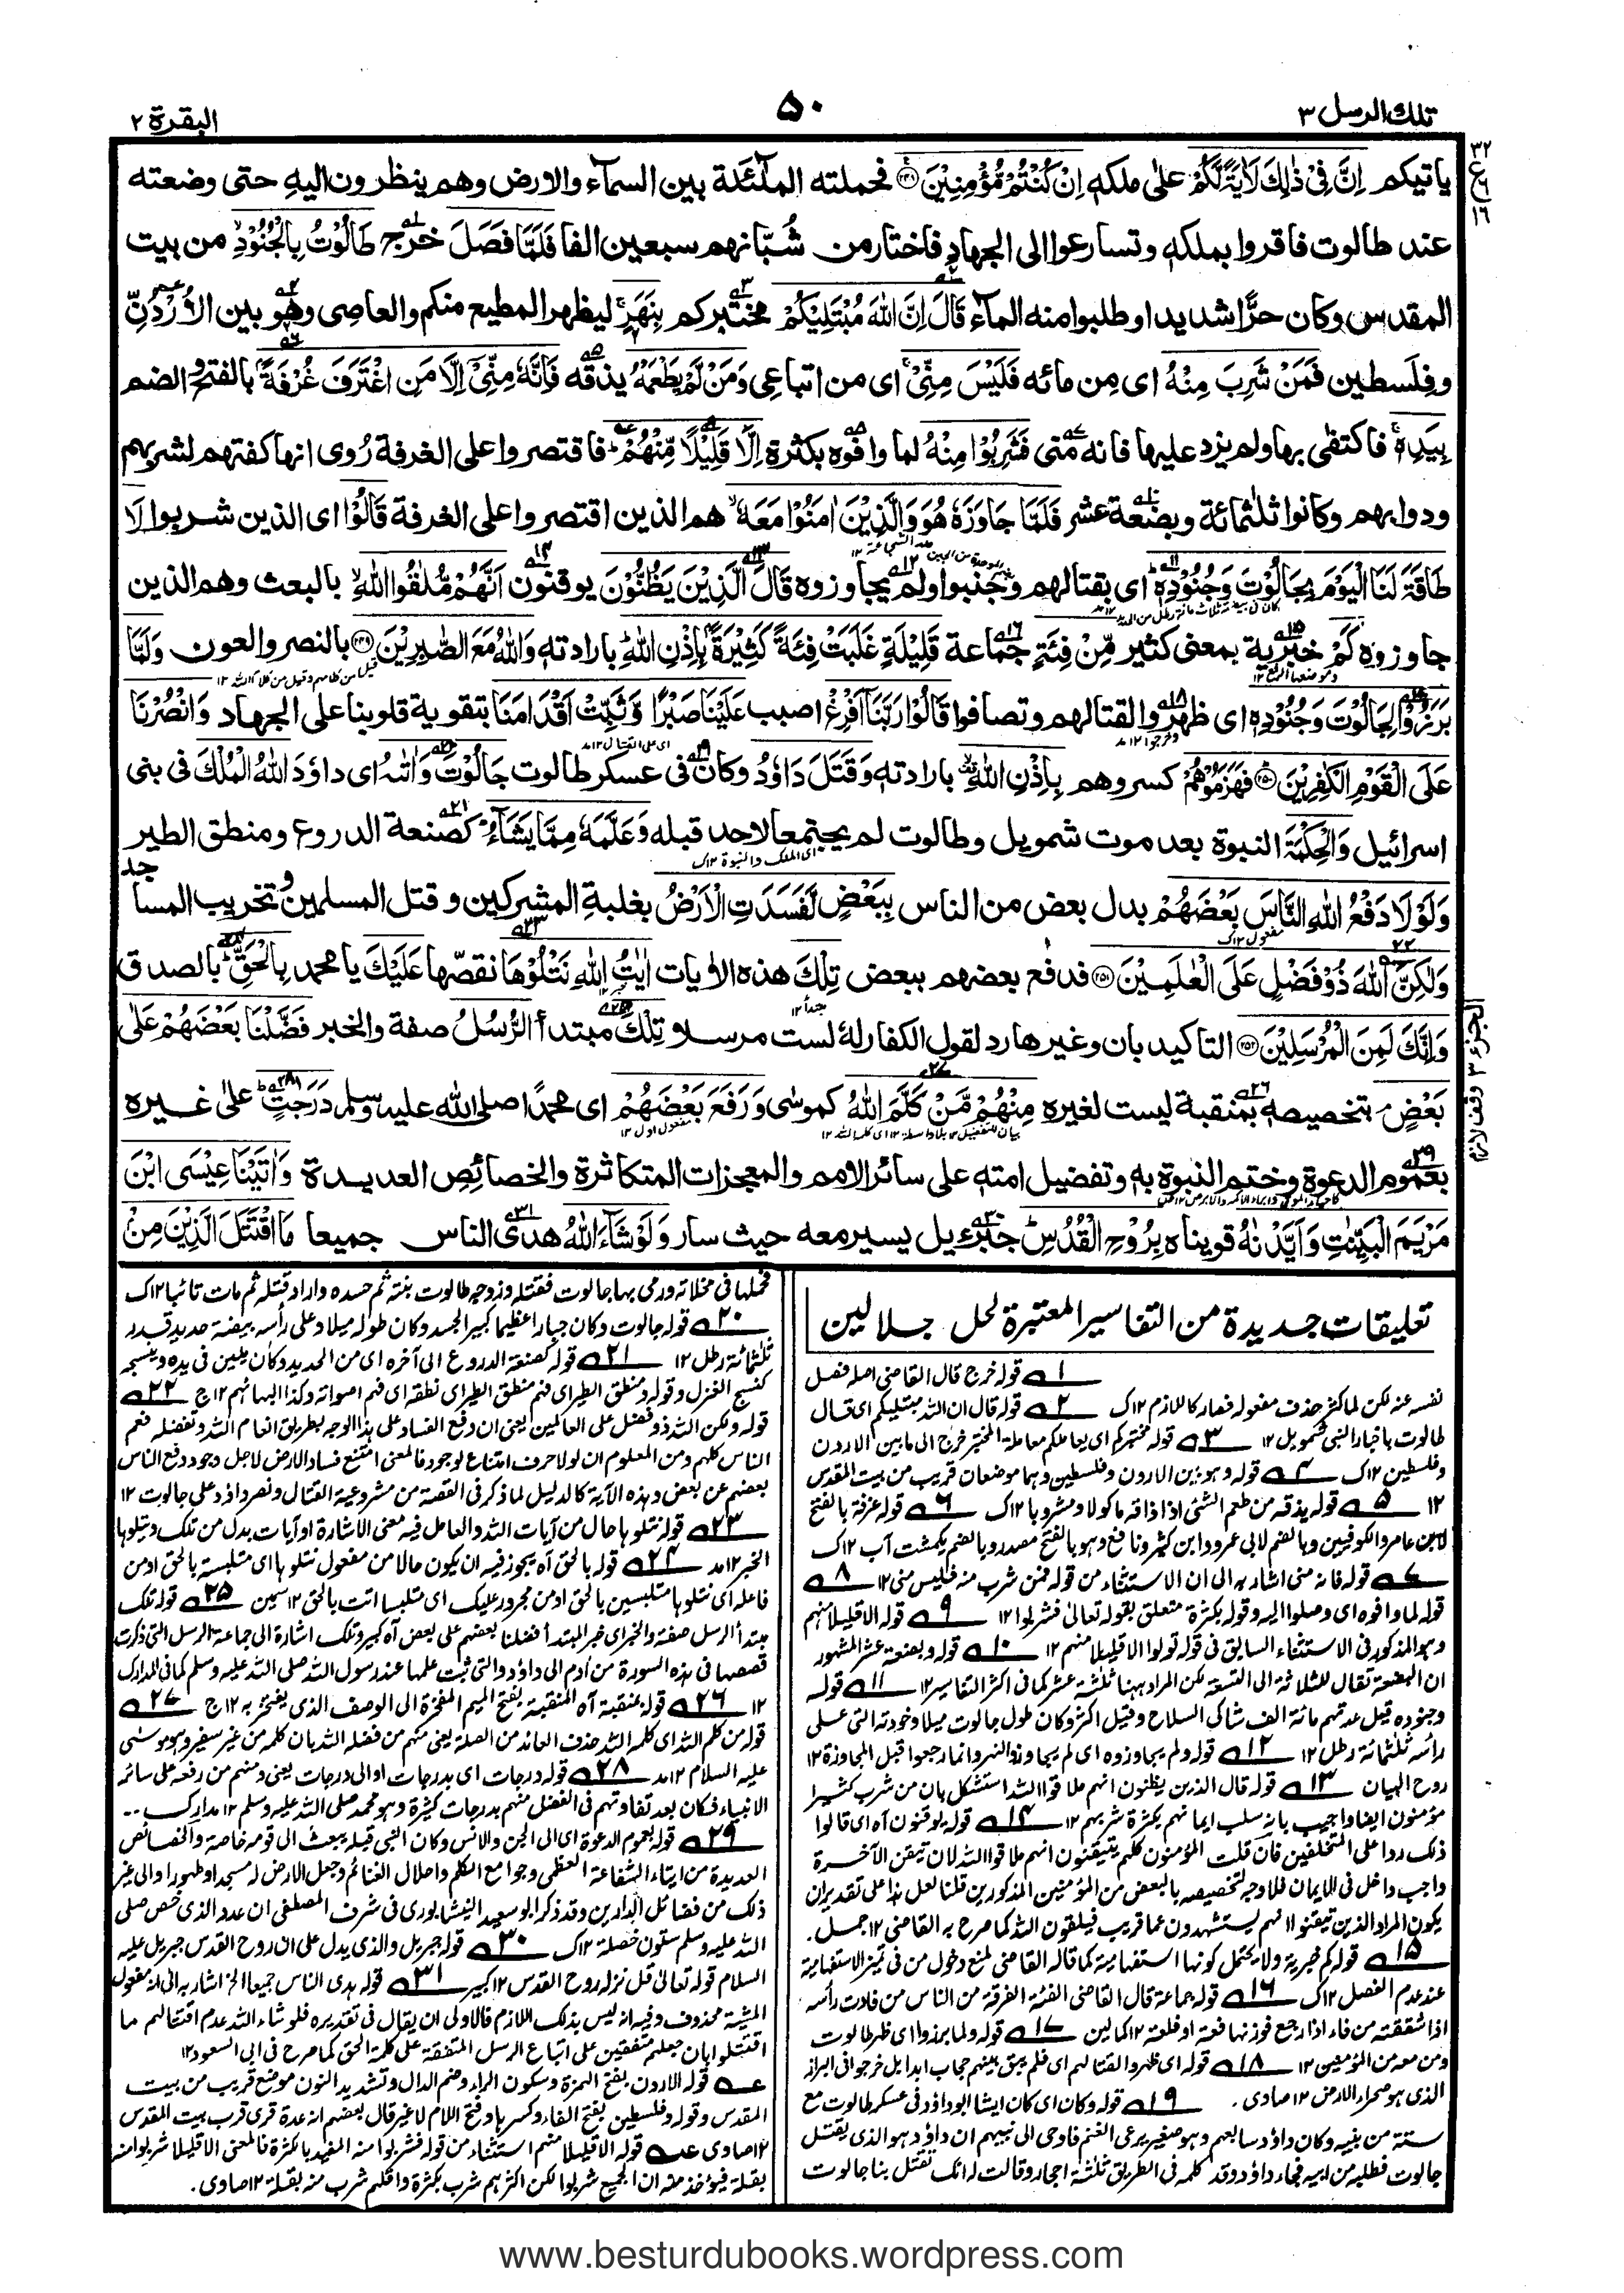 تلك الرسل ٣
٥٠
البقرة ٢
ياتيكم اِنَّ فِىْ ذٰلِكَ لَاٰيَةً لَّكُمْ على ملكه اِنْ كُنْتُمْ مُّؤْمِنِيْنَ ۝٢٤٨ فحملته الملٰئكة بين السماء والارض وهم ينظرون اليه حتى وضعته
عند طالوت فاقروا بملكه وتسارعوا الى الجهاد فاختار من شُبّانهم سبعين الفا فَلَمَّا فَصَلَ خرج طَالُوْتُ بِالْجُنُوْدِ من بيت
المقدس وكان حرًّا شديدا وطلبوا منه الماء قَالَ اِنَّ اللّٰهَ مُبْتَلِيْكُمْ مختبركم بِنَهَرٍ ليظهر المطيع منكم والعاصى وهو بين الاُرْدُنّ
وفِلَسطين فَمَنْ شَرِبَ مِنْهُ اى مِن مائه فَلَيْسَ مِنِّىْ اى من اتباعى وَمَنْ لَّمْ يَطْعَمْهُ يذقه فَاِنَّهٗ مِنِّىْ اِلَّا مَنِ اغْتَرَفَ غُرْفَةً بالفتح والضم
بِيَدِهٖ فاكتفى بها ولم يزد عليها فانه منى فَشَرِبُوْا مِنْهُ لما وافوه بكثرة اِلَّا قَلِيْلًا مِّنْهُمْ فاقتصروا على الغرفة رُوى انها كفتهم لشربهم
ودوابهم وكانوا ثلٰثمائة وبضعة عشر فَلَمَّا جَاوَزَهٗ هُوَ وَالَّذِيْنَ اٰمَنُوْا مَعَهٗ هم الذين اقتصروا على الغرفة قَالُوْا اى الذين شربوا لَا
طَاقَةَ لَنَا الْيَوْمَ بِجَالُوْتَ وَجُنُوْدِهٖ اى بقتالهم وجَنبوا ولم يجاوزوه قَالَ الَّذِيْنَ يَظُنُّوْنَ يوقنون اَنَّهُمْ مُّلٰقُوا اللّٰهِ بالبعث وهم الذين
جاوزوه كَمْ خبرية بمعنى كثير مِّنْ فِئَةٍ جماعة قَلِيْلَةٍ غَلَبَتْ فِئَةً كَثِيْرَةً بِاِذْنِ اللّٰهِ بارادته وَاللّٰهُ مَعَ الصّٰبِرِيْنَ ۝٢٤٩ بالنصر والعون وَلَمَّا
بَرَزُوْا لِجَالُوْتَ وَجُنُوْدِهٖ اى ظهروا لقتالهم وتصافوا قَالُوْا رَبَّنَآ اَفْرِغْ اصبب عَلَيْنَا صَبْرًا وَّثَبِّتْ اَقْدَامَنَا بتقوية قلوبنا على الجهاد وَانْصُرْنَا
عَلَى الْقَوْمِ الْكٰفِرِيْنَ ۝٢٥٠ فَهَزَمُوْهُمْ كسروهم بِاِذْنِ اللّٰهِ بارادته وَقَتَلَ دَاوٗدُ وكان فى عسكر طالوت جَالُوْتَ وَاٰتٰىهُ اى داوٗدَ اللّٰهُ الْمُلْكَ فى بنى
اسرائيل وَالْحِكْمَةَ النبوة بعد موت شمويل وطالوت لم يجتمعا لاحد قبله وَعَلَّمَهٗ مِمَّا يَشَآءُ كصنعة الدروع ومنطق الطير
وَلَوْلَا دَفْعُ اللّٰهِ النَّاسَ بَعْضَهُمْ بدل بعض من الناس بِبَعْضٍ لَّفَسَدَتِ الْاَرْضُ بغلبة المشركين وقتل المسلمين وتخريب المساجد
وَلٰكِنَّ اللّٰهَ ذُوْ فَضْلٍ عَلَى الْعٰلَمِيْنَ ۝٢٥١ فدفع بعضهم ببعض تِلْكَ هذه الاٰيات اٰيٰتُ اللّٰهِ نَتْلُوْهَا نقصّها عَلَيْكَ يا محمد بِالْحَقِّ بالصدق
وَاِنَّكَ لَمِنَ الْمُرْسَلِيْنَ ۝٢٥٢ التاكيد بان وغيرها رد لقول الكفار لهٗ لست مرسلا تِلْكَ مبتدأ الرُّسُلُ صفة والخبر فَضَّلْنَا بَعْضَهُمْ عَلٰى
بَعْضٍ بتخصيصه بمنقبة ليست لغيره مِنْهُمْ مَّنْ كَلَّمَ اللّٰهُ كموسٰى وَرَفَعَ بَعْضَهُمْ اى محمدًا صلى الله عليه وسلم دَرَجٰتٍ علىٰ غيره
بعموم الدعوة وختم النبوة به وتفضيل امته على سائر الامم والمعجزات المتكاثرة والخصائص العديدة وَاٰتَيْنَا عِيْسَى ابْنَ
مَرْيَمَ الْبَيِّنٰتِ وَاَيَّدْنٰهُ قويناه بِرُوْحِ الْقُدُسِ جبرئيل يسير معه حيث سار وَلَوْ شَآءَ اللّٰهُ هدى الناس جميعا مَا اقْتَتَلَ الَّذِيْنَ مِنْ
الجزء ٣ وقف لازم
تعليقات جديدة من التفاسير المعتبرة لحل جلالين
١ قوله خرج قال القاضى اصله فصل
نفسه عنه لكن لما كثر حذف مفعوله فصار كاللازم ١٢ك ٢ قوله قال ان الله مبتليكم اى قال
طالوت باخبار النبى شمويل ١٢ ٣ قوله مختبركم اى يعاملكم معاملة المختبر خرج الى ما بين الاردن
وفلسطين ١٢ك ٤ قوله وهو بين الاردن وفلسطين وهما موضعان قريب من بيت المقدس
١٢ ٥ قوله يذقه من طعم الشئ اذا ذاقه ماكولا ومشروبا ١٢ك ٦ قوله غرفة بالفتح
لابن عامر والكوفيين وبالضم لابى عمرو وابن كثير ونافع وهو بالفتح مصدر وبالضم يكمشت آب ١٢ك
٧ قوله فانه منى اشار به الى ان الاستثناء من قوله فمن شرب منه فليس منى ١٢ ٨
قوله لما وافوه اى وصلوا اليه وقوله بكثرة متعلق بقوله تعالى فشربوا ١٢ ٩ قوله الا قليلا منهم
وهو المذكور فى الاستثناء السابق فى قوله تولوا الا قليلا منهم ١٢ ١٠ قوله وبضعة عشر المشهور
ان البضعة تقال للثلاثة الى التسعة لكن المراد ههنا ثلثة عشر كما فى اكثر التفاسير ١٢ ١١ قوله
وجنوده قيل عدتهم مائة الف شاكى السلاح وقيل اكثر وكان طول جالوت ميلا وخوذته التى على
رأسه ثلثمائة رطل ١٢ ١٢ قوله ولم يجاوزوه اى لم يجاوزوا النهر وانما رجعوا قبل المجاوزة ١٢
روح البيان ١٣ قوله قال الذين يظنون انهم ملاقوا الله استشكل بان من شرب كثيرا
مؤمنون ايضا واجيب بانه سلب ايمانهم بكثرة شربهم ١٢ ١٤ قوله يوقنون آه اى قالوا
ذلك ردا على المتخلفين فان قلت المؤمنون كلهم يتيقنون انهم ملاقوا الله لان تيقن الآخرة
واجب داخل فى الايمان فلا وجه لتخصيصه بالبعض من المؤمنين المذكورين قلنا لعل هذا على تقدير ان
يكون المراد الذين تيقنوا انهم يستشهدون عما قريب فيلقون الله كما صرح به القاضى ١٢ جمل.
١٥ قوله كم خبرية ولا يحتمل كونها استفهامية كما قاله القاضى لمنع دخول من فى تميز الاستفهامية
عند عدم الفصل ١٢ك ١٦ قوله جماعة قال القاضى الفئة الفرقة من الناس من فادت رأسه
اذا شققته من فاء اذا رجع فوزنها فعة او فلعة ١٢ كمالين ١٧ قوله ولما برزوا اى ظهر طالوت
ومن معه من المؤمنين ١٢ ١٨ قوله اى ظهروا لقتالهم اى فلم يبق بينهم حجاب ابدا بل خرجوا فى البراز
الذى هو صحراء الارض ١٢ صاوى. ١٩ قوله وكان اى كان ايشا ابو داؤد فى عسكر طالوت مع
ستة من بنيه وكان داؤد سابعهم وهو صغير يرعى الغنم فاوحى الى نبيهم ان داؤد هو الذى يقتل
جالوت فطلبه من ابيه فجاء داؤد وقد كلمه فى الطريق ثلثة احجار وقالت له انك تقتل بنا جالوت
فحملها فى مخلاته ورمى بها جالوت فقتله وزوجه طالوت بنته ثم حسده واراد قتله ثم مات تائبا ١٢ك
٢٠ قوله جالوت وكان جبارا عظيما كبير الجسد وكان طوله ميلا وعلى رأسه بيضة حديد قدر
ثلثمائة رطل ١٢ ٢١ قوله كصنعة الدروع الى آخره اى من الحديد وكان يلين فى يده وينسجه
كنسج الغزل وقوله ومنطق الطير اى فهم منطق الطير اى نطقه اى فهم اصواته وكذا البهائم ١٢ج ٢٢
قوله ولكن الله ذو فضل على العالمين يعنى ان دفع الفساد على هذا الوجه بطريق انعام الله وتفضله فعم
الناس كلهم ومن المعلوم ان لولا حرف امتناع لوجود فالمعنى امتنع فساد الارض لاجل وجود دفع الناس
بعضهم عن بعض وهذه الآية كالدليل لما ذكر فى القصة من مشروعية القتال ونصر داؤد على جالوت ١٢
٢٣ قوله نتلوها حال من آيات الله والعامل فيه معنى الاشارة او آيات بدل من تلك ونتلوها
الخبر ١٢ مد ٢٤ قوله بالحق آه يجوز فيه ان يكون حالا من مفعول نتلوها اى متلبسة بالحق او من
فاعله اى نتلوها متلبسين بالحق او من مجرور عليك اى متلبسا انت بالحق ١٢ سمين ٢٥ قوله تلك
مبتدأ الرسل صفة والخبر اى خبر المبتدأ فضلنا بعضهم على بعض آه كبير وتلك اشارة الى جماعة الرسل التى ذكرت
قصصها فى هذه السورة من آدم الى داؤد والتى ثبت علمها عند رسول الله صلى الله عليه وسلم كما فى المدارك
١٢ ٢٦ قوله بمنقبة آه المنقبة بفتح الميم المفخرة الى الوصف الذى يفتخر به ١٢ج ٢٧
قوله من كلم الله اى كلمه الله حذف العائد من الصلة يعنى منهم من فضله الله بان كلمه من غير سفير وهو موسٰى
عليه السلام ١٢ مد ٢٨ قوله درجات اى بدرجات او الى درجات يعنى ومنهم من رفعه على سائر
الانبياء فكان بعد تفاوتهم فى الفضل منهم بدرجات كثيرة وهو محمد صلى الله عليه وسلم ١٢ مدارك
٢٩ قوله بعموم الدعوة اى الى الجن والانس وكان النبى قبله يبعث الى قومه خاصة والخصائص
العديدة من ايتاء الشفاعة العظمى وجوامع الكلم واحلال الغنائم وجعل الارض له مسجدا وطهورا والى غير
ذلك من فضائل الدارين وقد ذكر ابو سعيد النيشابورى فى شرف المصطفى ان عدد الذى خص صلى
الله عليه وسلم ستون خصلة ١٢ك ٣٠ قوله جبريل والذى يدل على ان روح القدس جبريل عليه
السلام قوله تعالى قل نزله روح القدس ١٢ كبير ٣١ قوله هدى الناس جميعا الخ اشار به الى ان مفعول
المشية محذوف وفيه انه ليس بذلك اللازم فالاولى ان يقال فى تقديره فلو شاء الله عدم اقتتالهم ما
اقتتلوا بان جعلهم متفقين على اتباع الرسل المتفقة على كلمة الحق كما صرح فى ابى السعود ١٢
عـه قوله الاردن بفتح الهمزة وسكون الراء وضم الدال وتشديد النون موضع قريب من بيت
المقدس وقوله وفلسطين بفتح الفاء وكسرها وفتح اللام لا غير قال بعضهم انه عدة قرى قرب بيت المقدس
١٢ صاوى عـه قوله الا قليلا منهم استثناء من قوله فشربوا منه المفيد بالكثرة فالمعنى الا قليلا شربوا منه
بقلة فيؤخذ منه ان الجميع شربوا لكن اكثرهم شرب بكثرة واقلهم شرب منه بقلة ١٢ صاوى.
www.besturdubooks.wordpress.com